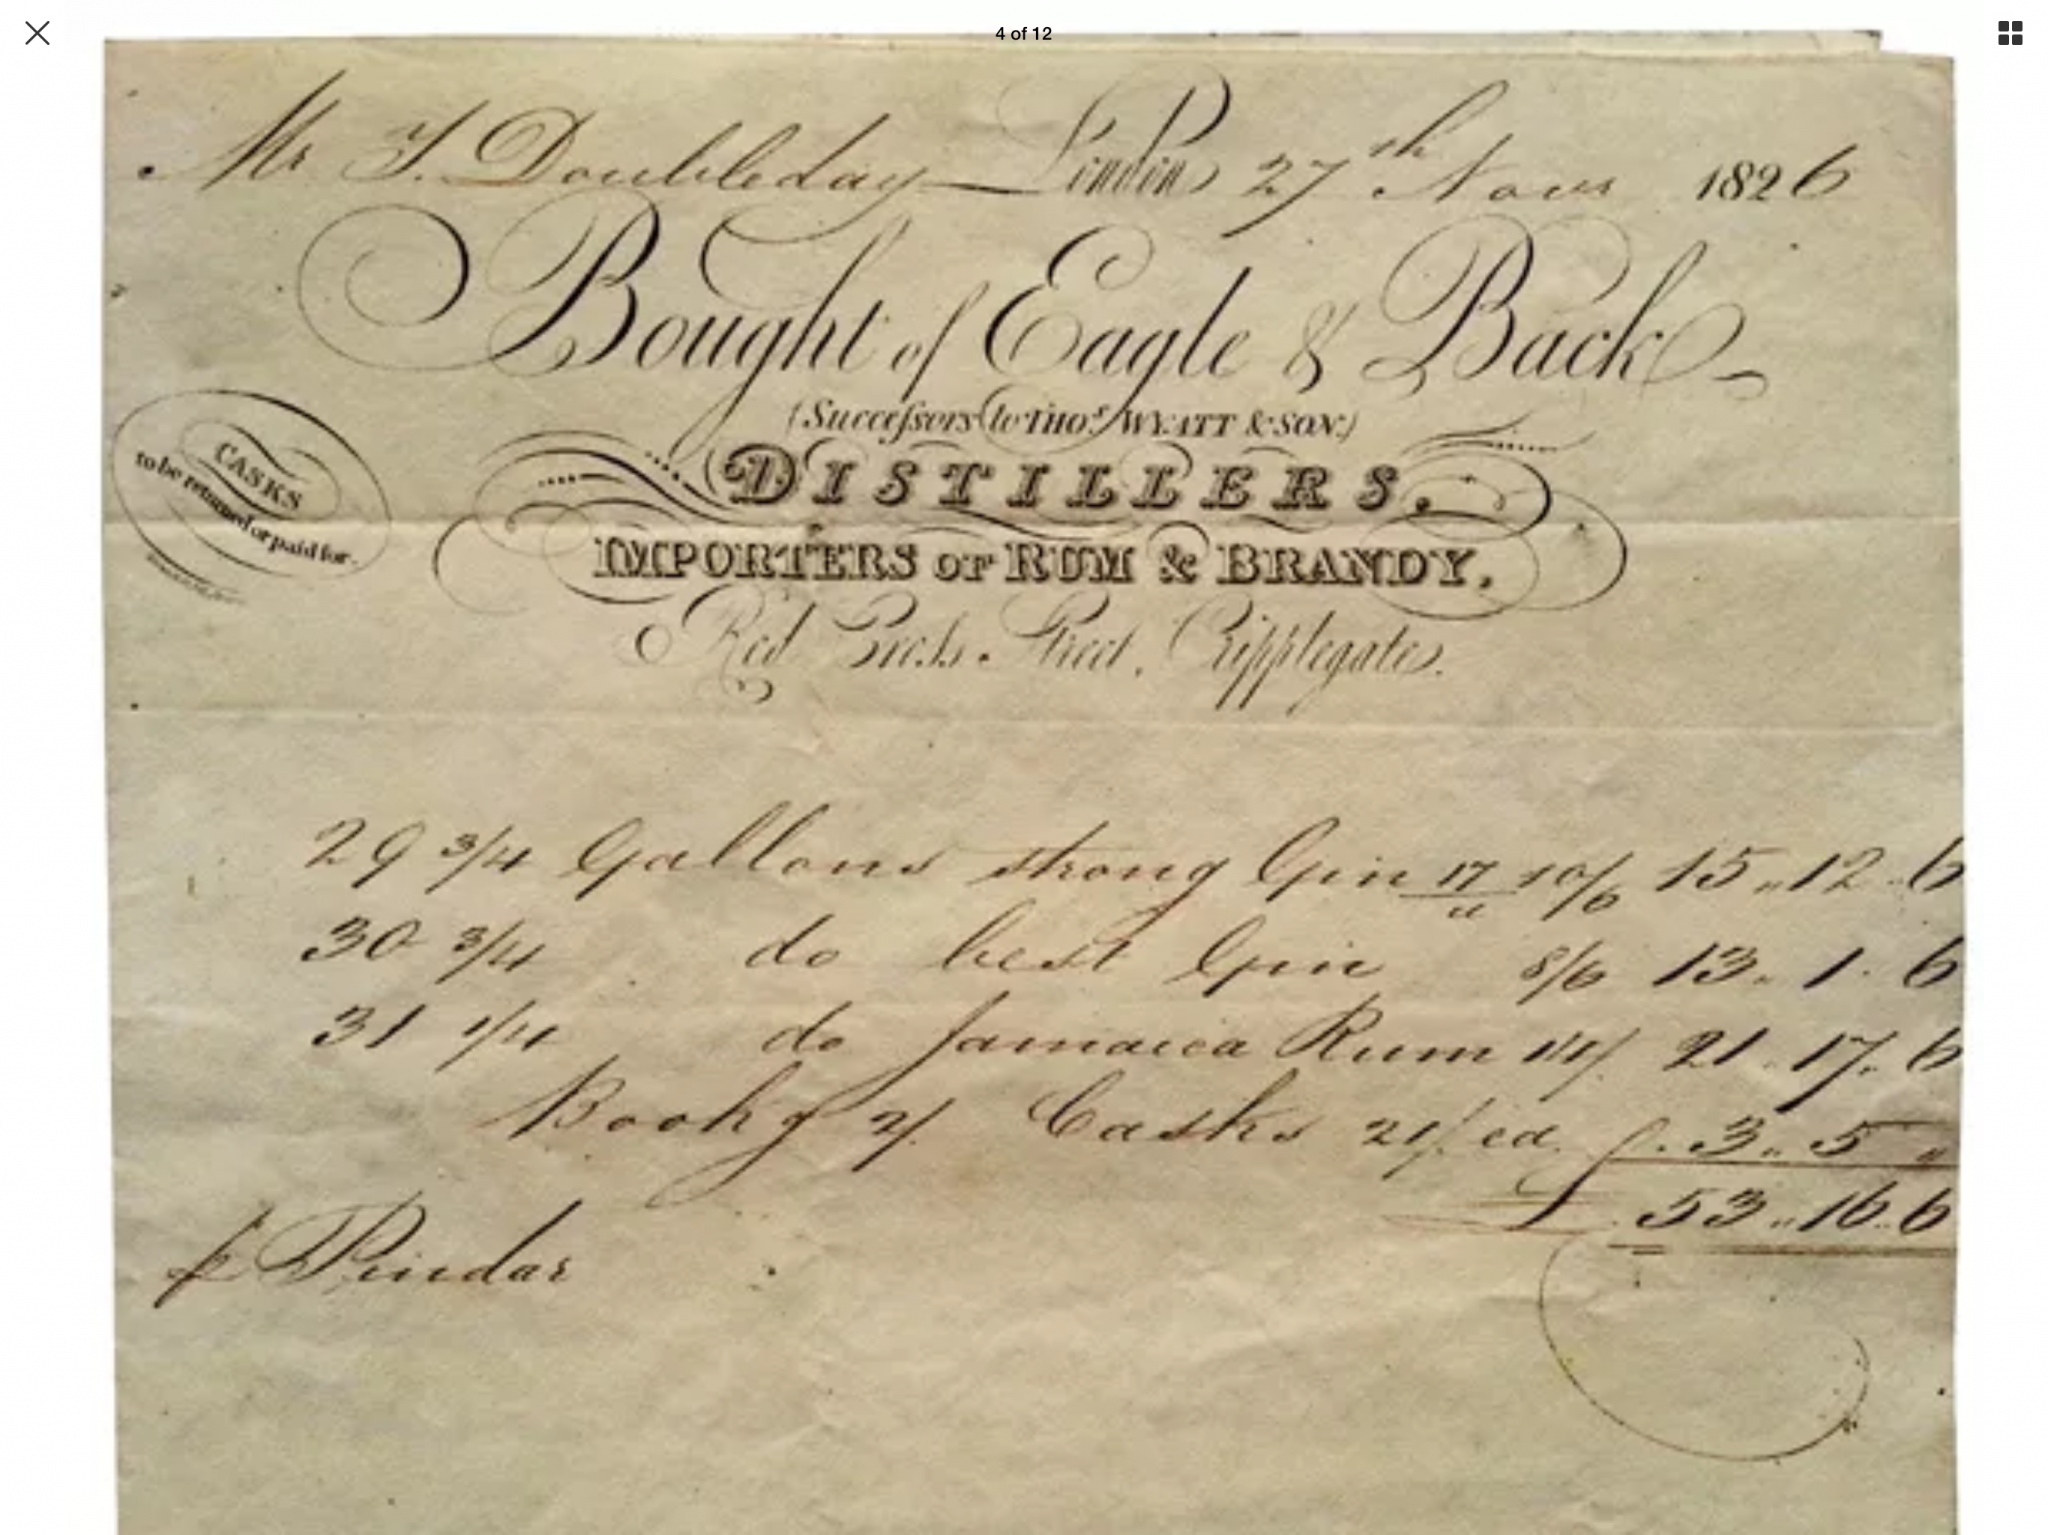 4 of 12
Mr T. Doubleday London 27th Novr 1826
Bought of Eagle & Back
(Successors to THOs. WYATT & SON.)
DISTILLERS,
IMPORTERS OF RUM & BRANDY,
Red Cross Street, Cripplegate.
CASKS
to be returned or paid for.
29 3/4 Gallons strong Gin 17 10/6 15 " 12 " 6
30 3/4 do best Gin 8/6 13 " 1 " 6
31 1/4 do Jamaica Rum 14/ 21 " 17 " 6
Bookg 2/ Casks 21/ ea. 3 " 5 "
£ 53 " 16 " 6
p Pindar